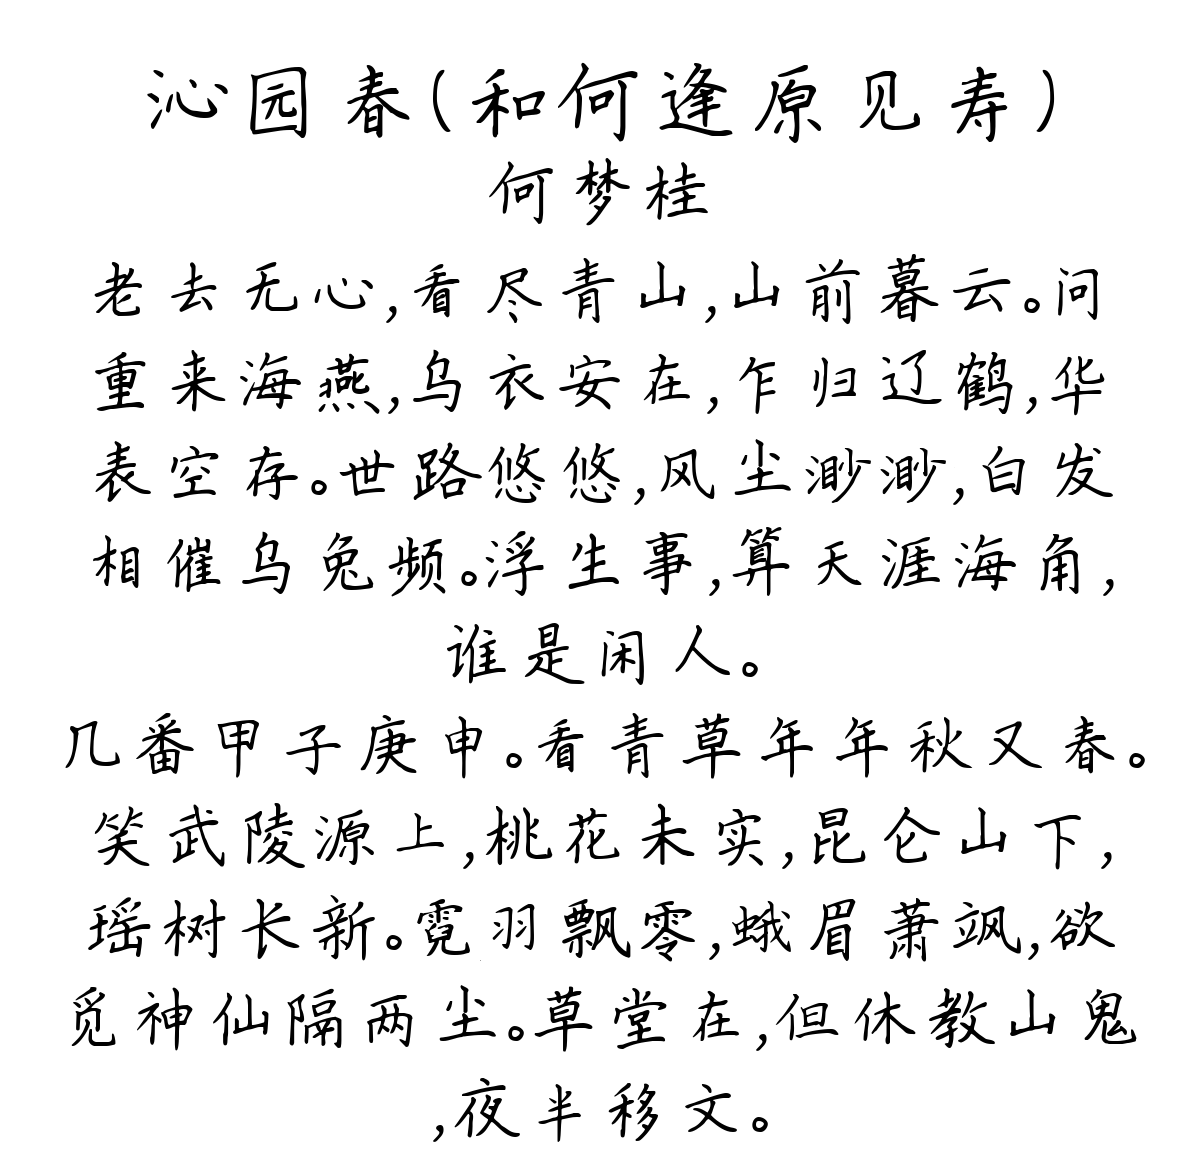 沁园春(和何逢原见寿)
何梦桂
老去无心,看尽青山,山前暮云。问
重来海燕,乌衣安在,乍归辽鹤,华
表空存。世路悠悠,风尘渺渺,白发
相催乌兔频。浮生事,算天涯海角,
谁是闲人。
几番甲子庚申。看青草年年秋又春。
笑武陵源上,桃花未实,昆仑山下,
瑶树长新。霓羽飘零,蛾眉萧飒,欲
觅神仙隔两尘。草堂在,但休教山鬼
,夜半移文。